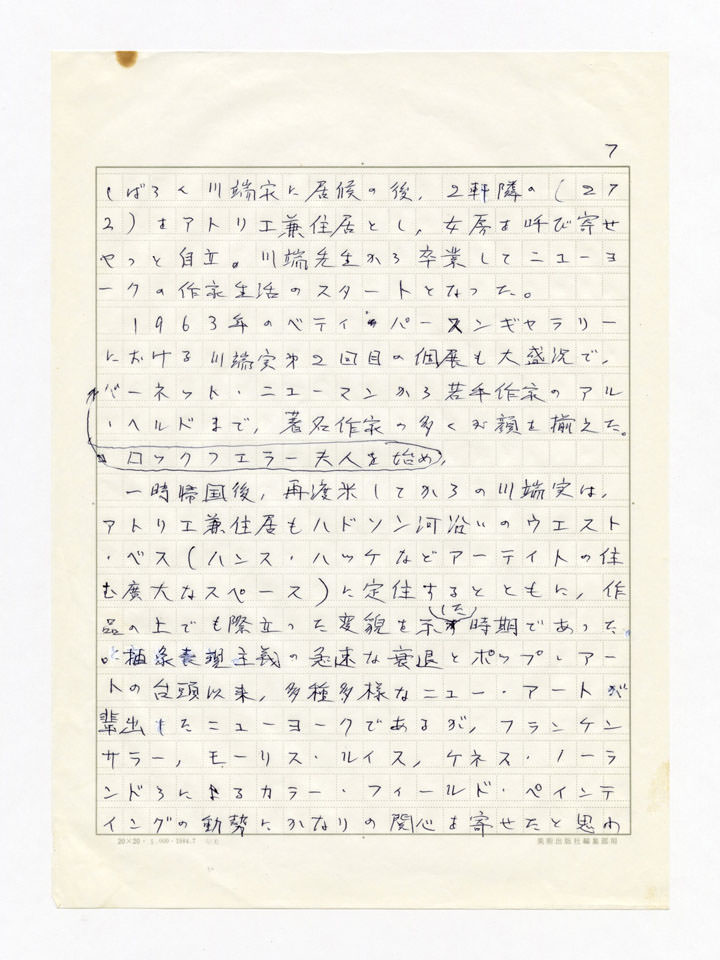 7
しばらく川端家に居候の後,2軒隣の(27
2)をアトリエ兼住居とし,女房を呼び寄せ
やっと自立。川端先生から卒業してニューヨ
ークの作家生活のスタートとなった。
1963年のベティ・パースンギャラリー
における川端実第2回目の個展も大盛況で,
バーネット・ニューマンから若手作家のアル
・ヘルドまで,著名作家の多くが顔を揃えた。
ロックフェラー夫人を始め,
一時帰国後,再渡米してからの川端実は,
アトリエ兼住居もハドソン河沿いのウエスト
・ベス(ハンス・ハッケなどアーティトの住
む廣大なスペース)に定住するとともに,作
品の上でも際立った変貌を示した時期であった
。抽象表現主義の急速な衰退とポップ・アー
トの台頭以来,多種多様なニュー・アートが
輩出したニューヨークであるが,フランケン
サラー,モーリス・ルイス,ケネス・ノーラ
ンドらによるカラー・フィールド・ペインテ
イングの動勢にかなりの関心を寄せたと思わ
20×20・1,000・1984.7
美術出版社編集部用